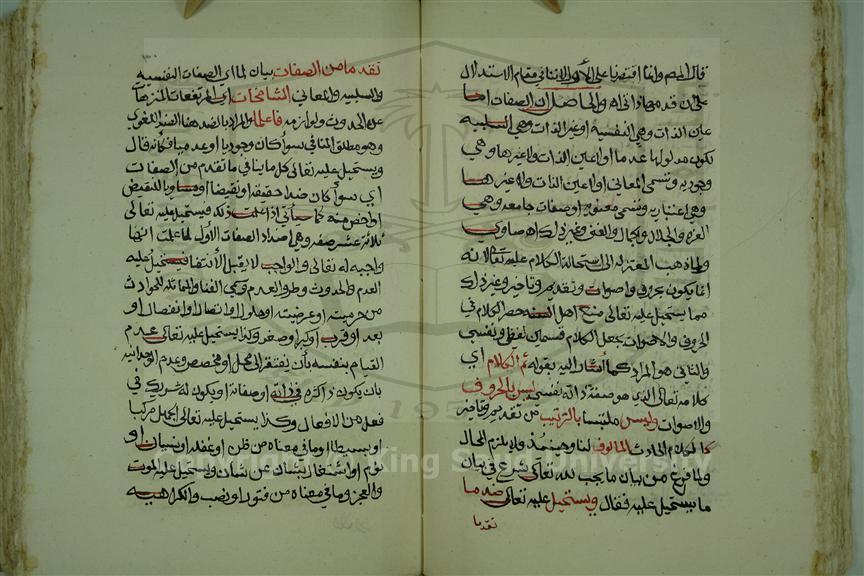 قال المصـ وانما اقتصرنا على الأول الاثنا في مقام الاستدلال
على ان قدمه لذاته اه والحاصل ان الصفات اما
عين الذات وهي النفسية او غير الذات وهي السلبية
تكون مدلولها عدما اولا عين الذات ولا غيرها وهي
وجودية وتسمى المعاني اولا عين الذات ولا غيرها
وهي اعتبارية وتسمى معنوية او صفات جامعة وهي
العزة والجلال والجمال والغنى وغير ذلك اهـ صاوي
ولما ذهب المعتزلة الى استحالة الكلام عليه تعالى لانه
انما يكون بحروف واصوات وبتقديم وتاخير وغير ذلك
مما يستحيل عليه تعالى منع اهل السنة حصر الكلام في
الحروف والاصوات بجعل الكلام قسمان لفظي ونفسي
والثاني هو المراد كما أشار اليه بقوله ثم الكلام اي
كلامه تعالى الذي هو صفة ذاته نفسي ليس بالحروف
والاصوات وليس ملتبسا بالترتيب من تقديم وتاخير
كالكلام الحادث المألوف لنا وحينئذ فلا يلزم المحال
ولما فرغ من بيان ما يجب لله تعالى شرع في بيان
ما يستحيل عليه فقال ويستحيل عليه تعالى ضد ما
تقدما
تقدم ما من الصفات بيان لما اي الصفات النفسية
والسلبية والمعاني الشامخات اي المرتفعات المنزهات
عن الحدوث ولوازمه فاعلما والمراد بالضد هنا الضد اللغوي
وهو مطلق المنافي سواء كان وجوديا او عدميا فكأنه قال
ويستحيل عليه تعالى كل ما ينافي ما تقدم من الصفات
اي سواء كان ضدا حقيقة او نقيضا او مساويا للنقيض
او اخص منه كما سيأتي اذا علمت ذلك فيستحيل عليه تعالى
ثلاثة عشر صفة وهي اضداد الصفات الأول لما علمت انها
واجبة له تعالى والواجب لا يقبل الانتفا فيستحيل عليه
العدم والحدوث وطرو العدم وسمى الفنا والمماثلة للحوادث
من جرمية او عرضية او حلول او اتصال او انفصال او
بعد او قرب او كبر او صغر وكذا يستحيل عليه تعالى عدم
القيام بنفسه بأن يفتقر الى محل او مخصص وعدم الوحدانية
بان يكون ذا كثرة في ذاته او صفاته او يكون له شريك في
فعل من الافعال وكذا يستحيل عليه تعالى الجهل مركبا
او بسيطا وما في معناه من ظن او غفلة او نسيان او
نوم او اشتغال بشان عن شان ويستحيل عليه الموت
والعجز وما في معناه من فتور او نصب والكراهية